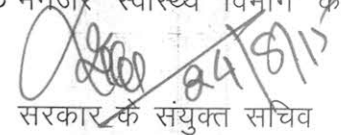 मैनेजर स्वास्थ्य विभाग के
24/8/15
सरकार के संयुक्त सचिव